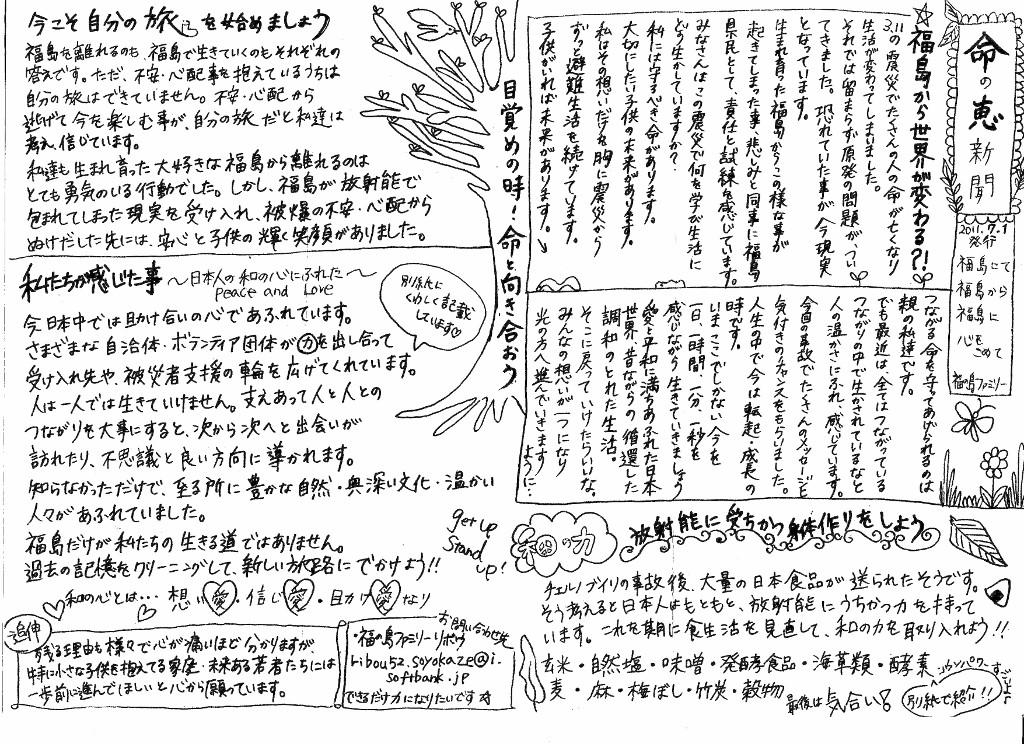 命の恵新聞
2011.7.1
発行
福島にて
福島から
福島に
心を
こめて
福島ファミリー
福島から世界が変わる?!
3.11の震災でたくさんの人の命が亡くなり
生活が変わってしまいました。
それでは留まらず原発の問題が、つい
てきました。恐れていた事が今現実
となっています。
生まれ育った福島からこの様な事が
起きてしまった事、悲しみと同時に福島
県民として、責任と試練を感じています。
みなさんはこの震災で何を学び生活に
どう生かしていますか?
私には守るべき命があります。
大切にしたい子供の未来があります。
私はその想いだけを胸に震災から
ずっと避難生活を続けています。
子供がいれば未来があります。
つながる命を守ってあげられるのは
親の私達です。
でも最近は、全てはつながっている
つながりの中で生かされているなと
人の温かさにふれ、感じています。
今回の事故でたくさんのメッセージと
気付きのチャンスをもらいました。
人生の中で今は転起・成長の
時です。
いまここでしかない今を
一日一時間一分、一秒を
感じながら生きていきましょう
愛と平和に満ちあふれた日本
世界、昔ながらの循還した
調和のとれた生活。
そこに戻っていけたらいいな。
みんなの想いが一つになり
光の方へ進んでいきます
ように…
目覚めの時!命と向き合おう
今こそ自分の旅を始めましょう
福島を離れるのも、福島で生きていくのもそれぞれの
答えです。ただ、不安・心配事を抱えているうちは
自分の旅はできていません。不安・心配から
逃げて今を楽しむ事が、自分の旅だと私達は
考え、信じています。
私達も生まれ育った大好きな福島から離れるのは
とても勇気のいる行動でした。しかし、福島が放射能で
包まれてしまった現実を受け入れ、被爆の不安・心配から
ぬけだした先には、安心と子供の輝く笑顔がありました。
私たちが感じた事 〜日本人の和の心にふれた〜
peace and Love
別紙に
くわしく記載
しています♡
今日本中では助け合いの心であふれています。
さまざまな自治体・ボランティア団体が力を出し合って
受け入れ先や、被災者支援の輪を広げてくれています。
人は一人では生きていけません。支えあって人と人との
つながりを大事にすると、次から次へと出会いが
訪れたり、不思議と良い方向に導かれます。
知らなかっただけで、至る所に豊かな自然・奥深い文化・温かい
人々があふれていました。
福島だけが私たちの生きる道ではありません。
過去の記憶をクリーニングして、新しい旅路にでかけよう!!
get up
stand
up!
和の心とは… 想い愛・信じ愛・助け愛なり
追伸
残る理由も様々で心が痛いほど分かりますが、
特に小さな子供を抱えてる家庭・未来ある若者たちには
一歩前に進んでほしいと心から願っています。
お問い合わせ先
・福の島ファミリー・リボウ
Libou52.soyokaze@i.
softbank.jp
できるだけ力になりたいです
の力
放射能に受ちかつ身体作りをしよう
チェルノブイリの事故後、大量の日本食品が送られたそうです。
そう考えると日本人はもともと、放射能にうちかつ力を持って
います。これを期に食生活を見直して、和の力を取り入れよう!!
玄米・自然塩・味噌・発酵食品・海草類・酵素
麦・麻・梅ぼし・竹炭・穀物
最後は気合い!
別紙で紹介!!